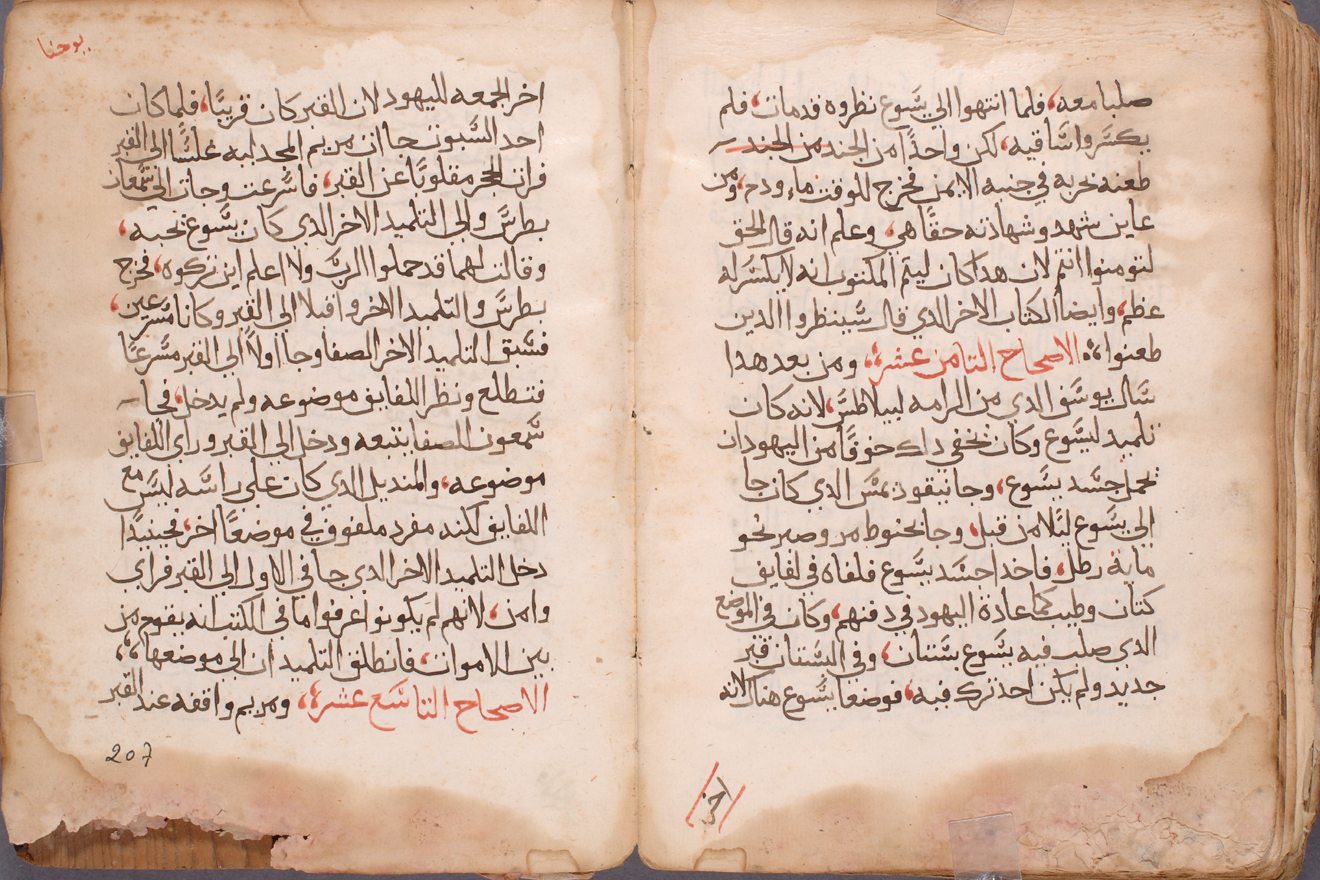 صلبا معه، فلما انتهوا الي يسوع نظروه قد مات، فلم
يكسروا ساقيه، لكن واحدًا من الجند من الجند
طعنه بحربه في جنبه الايمن فخرج للوقت ماء ودم، ومن
عاين شهد وشهادته حقًا هي، وعلم انه قال الحق
لتومنوا انتم لان هدا كان ليتم المكتوب انه لا يكسر له
عظم، وايضًا الكتاب الاخر الدي قال سينظروا الدين
طعنوا، الاصحاح التامن عشر، ومن بعد هدا
سال يوسف الدي من الرامه لبيلاطس، لانه كان
تلميد ليسوع وكان نخفي داك خوفًا من اليهود ان
نحمل جسد يسوع، وجا نيقوديمس الدي كان جا
الي يسوع ليلًا من قبل، وجا نحنوط مر وصبر نحو
ماية رطل، فاخد احسد يسوع فلفاه في لفايف
كتان وطيب كما عادة اليهود في دفنهم، وكان في الموضع
الدي صلب فيه يسوع بستان، وفي البستان قبر
جديد ولم يكن احد ترك فيه، فوضعا يسوع هناك لانه
يوحنا
اخر الجمعه لليهود لان القبر كان قريبًا، فلما كان
احد السبوت جاات مريم المجدليه غلسًا الي القبر
فرات الحجر مقلوبًا عن القبر، فاسرعت وجات الي سمعان
بطرس والي التلميد الاخر الدي كان يسوع نحبه،
وقالت لهما قد حملوا الرب ولا اعلم اين تركوه، فخرج
بطرس والتلميد الاخر واقبلا الي القبر وكانا مسرعين،
فسبق التلميد الاخر الصفا وجا اولًا الي القبر مسرعًا
فتطلع ونظر اللفايف موضوعه ولم يدخل، فجا
سمعون الصفا يتبعه ودخل الي القبر وراي اللفايف
موضوعه، والمنديل الدي كان علي راسه ليس مع
اللفايف لكنه مفرد ملفوف في موضعًا اخر، فحينيدًا
دخل التلميد الاخر الدي جا في الاول الي القبر فراي
وامن، لانهم لم يكونوا عرفوا ما في الكتب انه يقوم من
بين الاموات، فانطلق التلميدان الي موضعها،
الاصحاح التاسع عشر، ومريم واقفه عند القبر
207